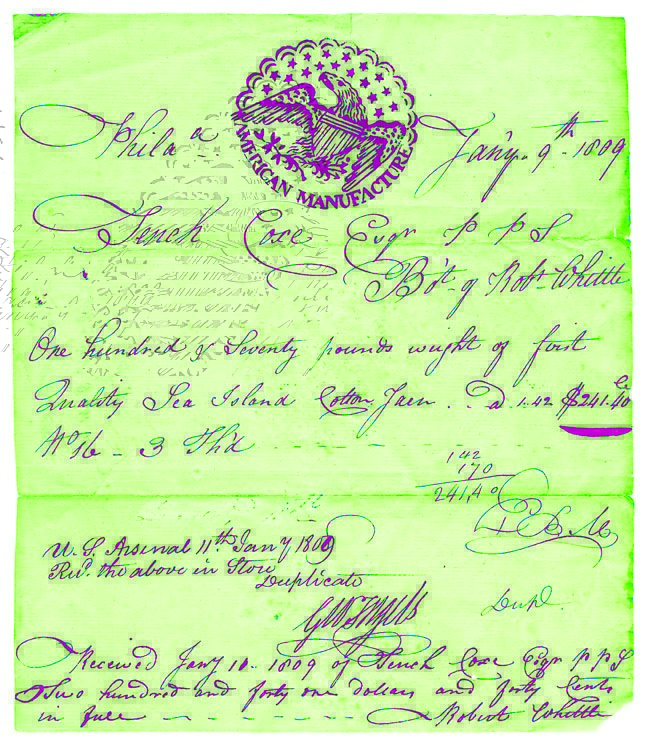 AMERICAN MANUFACTURE
Phila a. Jan'y. 9th 1809
Tench Coxe Esqr P P S
Bo't of Robt Whittle
One hundred & Seventy pounds weight of first
Quality Sea Island Cotton Yarn . . a 1.42 $241.40
No 16 - 3 Th'd
142
170
241,40
U. S. Arsenal 11th Jany 1809
Recd. the above in Store
Duplicate
Dupl.
Received Jany 10. 1809 of Tench Coxe Esqr P P S
Two hundred and forty one dollars and forty Cents
in full Robert Whittle